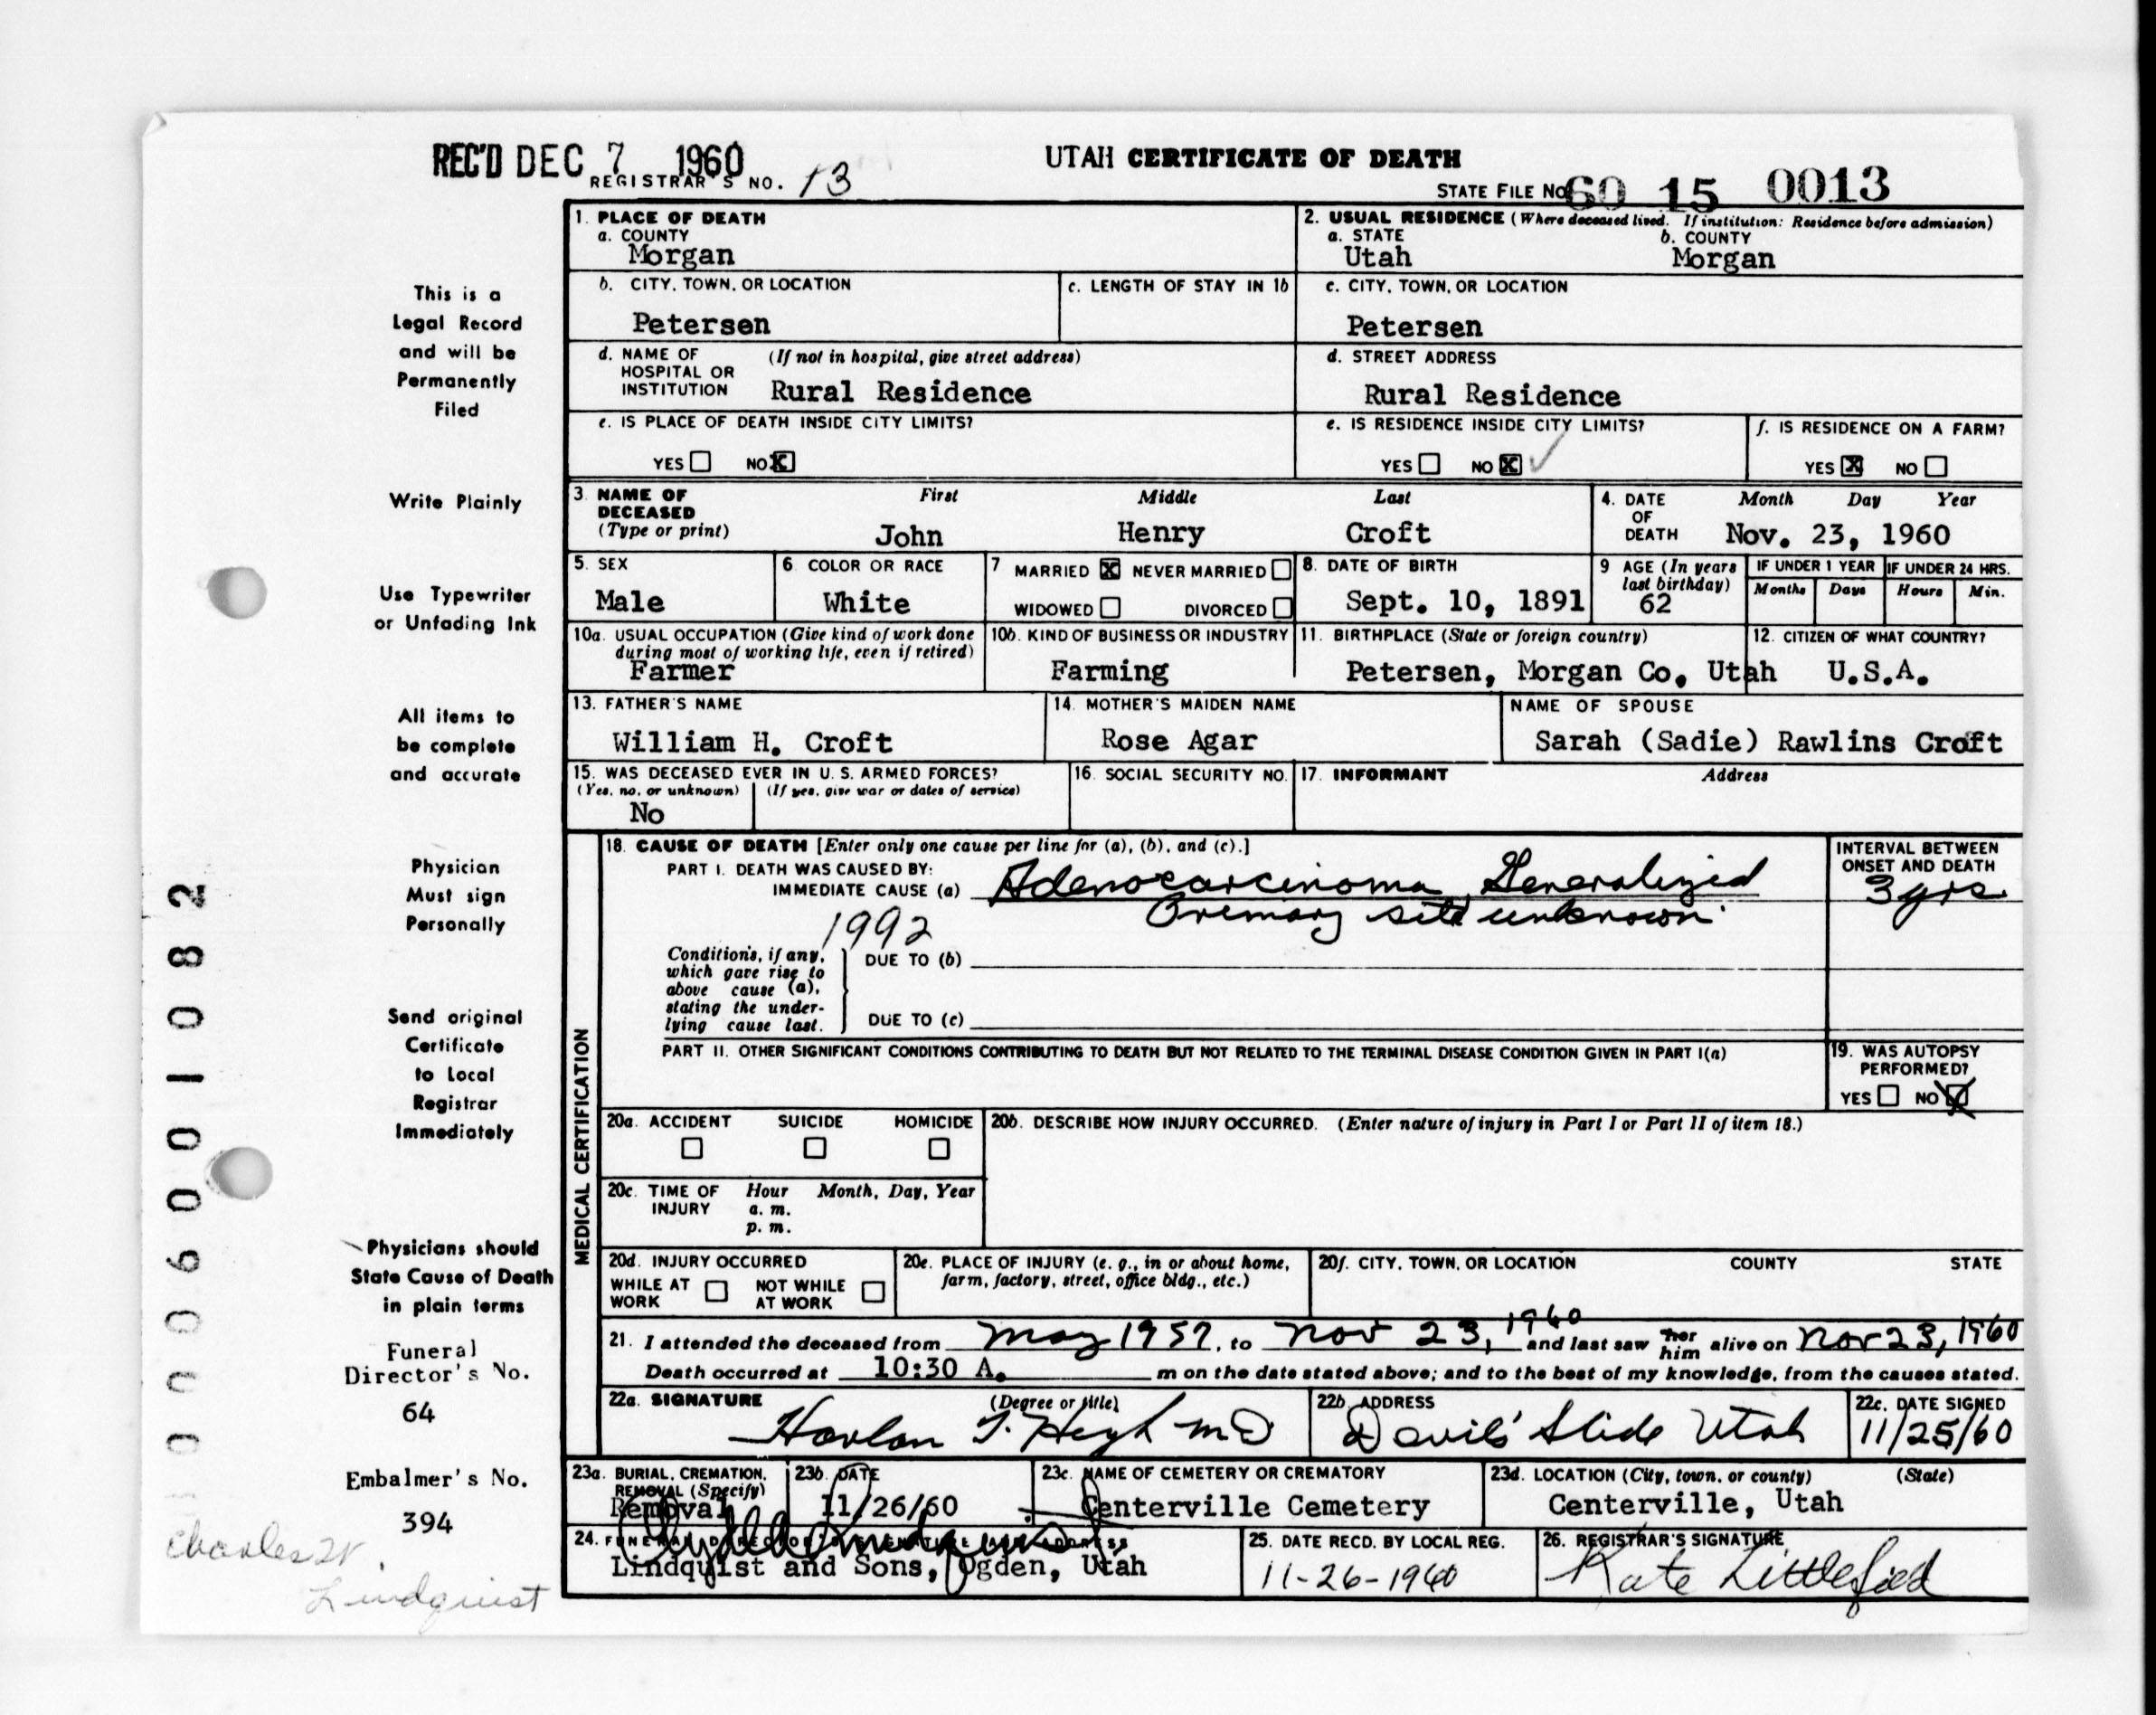 REC'D DEC 7 1960
REGISTRAR'S NO. 13
UTAH CERTIFICATE OF DEATH
STATE FILE NO. 60 15 0013
This is a
Legal Record
and will be
Permanently
Filed
Write Plainly
Use Typewriter
or Unfading Ink
All items to
be complete
and accurate
Physician
Must sign
Personally
Send original
Certificate
to Local
Registrar
Immediately
Physicians should
State Cause of Death
in plain terms
Funeral
Director's No.
64
Embalmer's No.
394
Charles W.
Lindquist
0006001082
1. PLACE OF DEATH
a. COUNTY
Morgan
2. USUAL RESIDENCE (Where deceased lived. If institution: Residence before admission)
a. STATE b. COUNTY
Utah Morgan
b. CITY, TOWN, OR LOCATION
Petersen
c. LENGTH OF STAY IN 1b
c. CITY, TOWN, OR LOCATION
Petersen
d. NAME OF HOSPITAL OR INSTITUTION (If not in hospital, give street address)
Rural Residence
d. STREET ADDRESS
Rural Residence
e. IS PLACE OF DEATH INSIDE CITY LIMITS?
YES NO X
e. IS RESIDENCE INSIDE CITY LIMITS?
YES NO X
f. IS RESIDENCE ON A FARM?
YES X NO
3. NAME OF DECEASED (Type or print)
First Middle Last
John Henry Croft
4. DATE OF DEATH Month Day Year
Nov. 23, 1960
5. SEX
Male
6. COLOR OR RACE
White
7. MARRIED X NEVER MARRIED
WIDOWED DIVORCED
8. DATE OF BIRTH
Sept. 10, 1891
9. AGE (In years last birthday)
62
IF UNDER 1 YEAR IF UNDER 24 HRS.
Months Days Hours Min.
10a. USUAL OCCUPATION (Give kind of work done during most of working life, even if retired)
Farmer
10b. KIND OF BUSINESS OR INDUSTRY
Farming
11. BIRTHPLACE (State or foreign country)
Petersen, Morgan Co. Utah
12. CITIZEN OF WHAT COUNTRY?
U.S.A.
13. FATHER'S NAME
William H. Croft
14. MOTHER'S MAIDEN NAME
Rose Agar
NAME OF SPOUSE
Sarah (Sadie) Rawlins Croft
15. WAS DECEASED EVER IN U. S. ARMED FORCES?
(Yes, no, or unknown) (If yes, give war or dates of service)
No
16. SOCIAL SECURITY NO.
17. INFORMANT Address
MEDICAL CERTIFICATION
18. CAUSE OF DEATH [Enter only one cause per line for (a), (b), and (c).]
PART I. DEATH WAS CAUSED BY:
IMMEDIATE CAUSE (a) Adenocarcinoma, Generalized
Primary site unknown.
1992
Conditions, if any, which gave rise to above cause (a), stating the underlying cause last.
DUE TO (b)
DUE TO (c)
INTERVAL BETWEEN ONSET AND DEATH
3 yrs
PART II. OTHER SIGNIFICANT CONDITIONS CONTRIBUTING TO DEATH BUT NOT RELATED TO THE TERMINAL DISEASE CONDITION GIVEN IN PART I(a)
19. WAS AUTOPSY PERFORMED?
YES NO X
20a. ACCIDENT SUICIDE HOMICIDE
20b. DESCRIBE HOW INJURY OCCURRED. (Enter nature of injury in Part I or Part II of item 18.)
20c. TIME OF INJURY Hour Month, Day, Year
a. m.
p. m.
20d. INJURY OCCURRED
WHILE AT WORK NOT WHILE AT WORK
20e. PLACE OF INJURY (e. g., in or about home, farm, factory, street, office bldg., etc.)
20f. CITY, TOWN, OR LOCATION COUNTY STATE
21. I attended the deceased from May 1957, to Nov 23, 1960 and last saw her him alive on Nov 23, 1960
Death occurred at 10:30 A. m on the date stated above; and to the best of my knowledge, from the causes stated.
22a. SIGNATURE (Degree or title)
Harlan MD
22b. ADDRESS
Devil's Slide Utah
22c. DATE SIGNED
11/25/60
23a. BURIAL, CREMATION, REMOVAL (Specify)
Removal
23b. DATE
11/26/60
23c. NAME OF CEMETERY OR CREMATORY
Centerville Cemetery
23d. LOCATION (City, town, or county) (State)
Centerville, Utah
24. FUNERAL DIRECTOR'S SIGNATURE AND ADDRESS
Lindquist and Sons, Ogden, Utah
25. DATE RECD. BY LOCAL REG.
11-26-1960
26. REGISTRAR'S SIGNATURE
Kate Littlefield